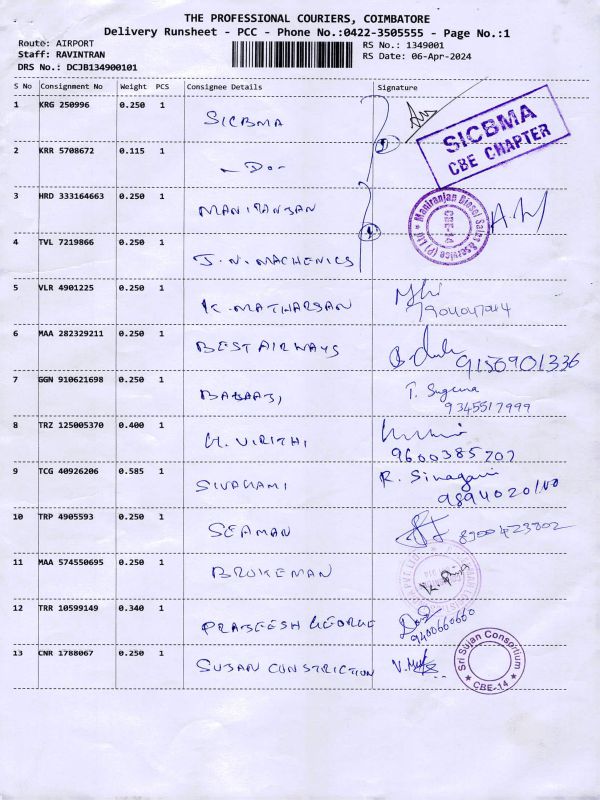 THE PROFESSIONAL COURIERS, COIMBATORE
Delivery Runsheet - PCC - Phone No.:0422-3505555 - Page No.:1
Route: AIRPORT
RS No.: 1349001
Staff: RAVINTRAN
RS Date: 06-Apr-2024
DRS No.: DCJB134900101
S No Consignment No Weight PCS Consignee Details Signature
1 KRG 250996 0.250 1 SICBMA
SICBMA
CBE CHAPTER
2 KRR 5708672 0.115 1 - Do -
3 HRD 333164663 0.250 1 MANIRANJAN
Maniranjan Diesel Sales & Service (P) Ltd
CBE-14
4 TVL 7219866 0.250 1 J.N. MACHENICS
5 VLR 4901225 0.250 1 K. MATHARSAN
6 MAA 282329211 0.250 1 BEST AIRWAYS 9150901336
7 GGN 910621698 0.250 1 BABAAJI T. Suguna
9345517999
8 TRZ 125005370 0.400 1 VIRITHI
9600385707
9 TCG 40926206 0.585 1 SIVAGAMI R. Sivagami
10 TRP 4905593 0.250 1 SEAMAN
11 MAA 574550695 0.250 1 BROKEMAN
12 TRR 10599149 0.340 1 PRAGEESH GEORGE
9400660660
13 CNR 1788067 0.250 1 SUJAN CONSTRICTION
Sri Sujan Consortium
CBE-14